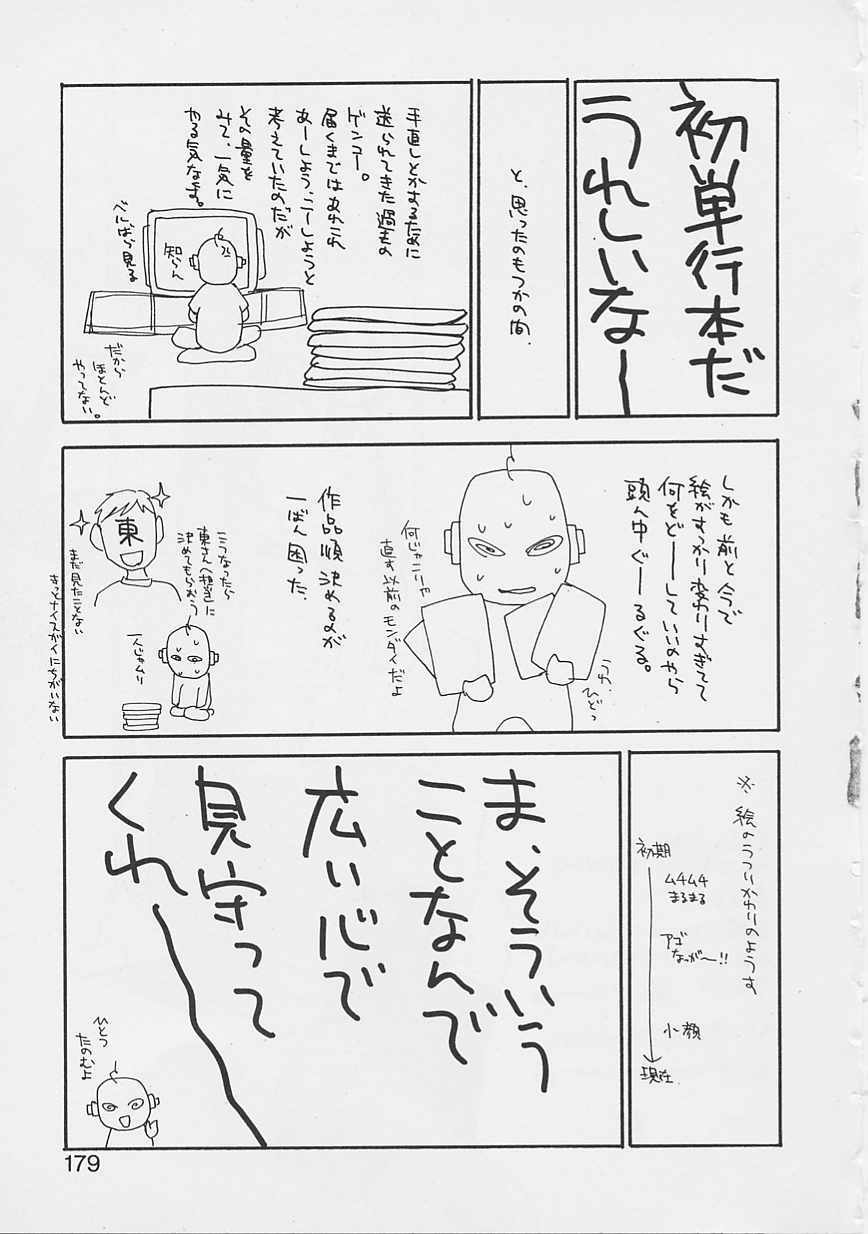 初単行本だ
うれしいなー
と、思ったのもつかの間、
手直しとかするために
送られてきた過去の
ゲンコー。
届くまではあれこれ
あーしよう、こーしようと
考えていたのだが
その量を
みて、一気に
やる気なまず。
べにばら見る
知らん
だから
ほとんど
やってない。
しかも前と今で
絵がすっかり変わりすぎてて
何をどーしていいのやら
頭ん中ぐーるぐる。
うわ、
ひどっ
何じゃこりゃ
直す以前のモンダイだよ
作品順決めるのが
一ばん困った。
こうなったら
東さん(担当)に
決めてもらおう
一人じゃムリ
東
まだ見たことない
きっとナイスガイにちがいない
※絵のうつりかわりのようす
初期
ムチムチ
まるまる
アゴ
なっが〜!!
小顔
現在
ま、そういう
ことなんで
広い心で
見守って
くれー
ひとつ
たのむよ
179